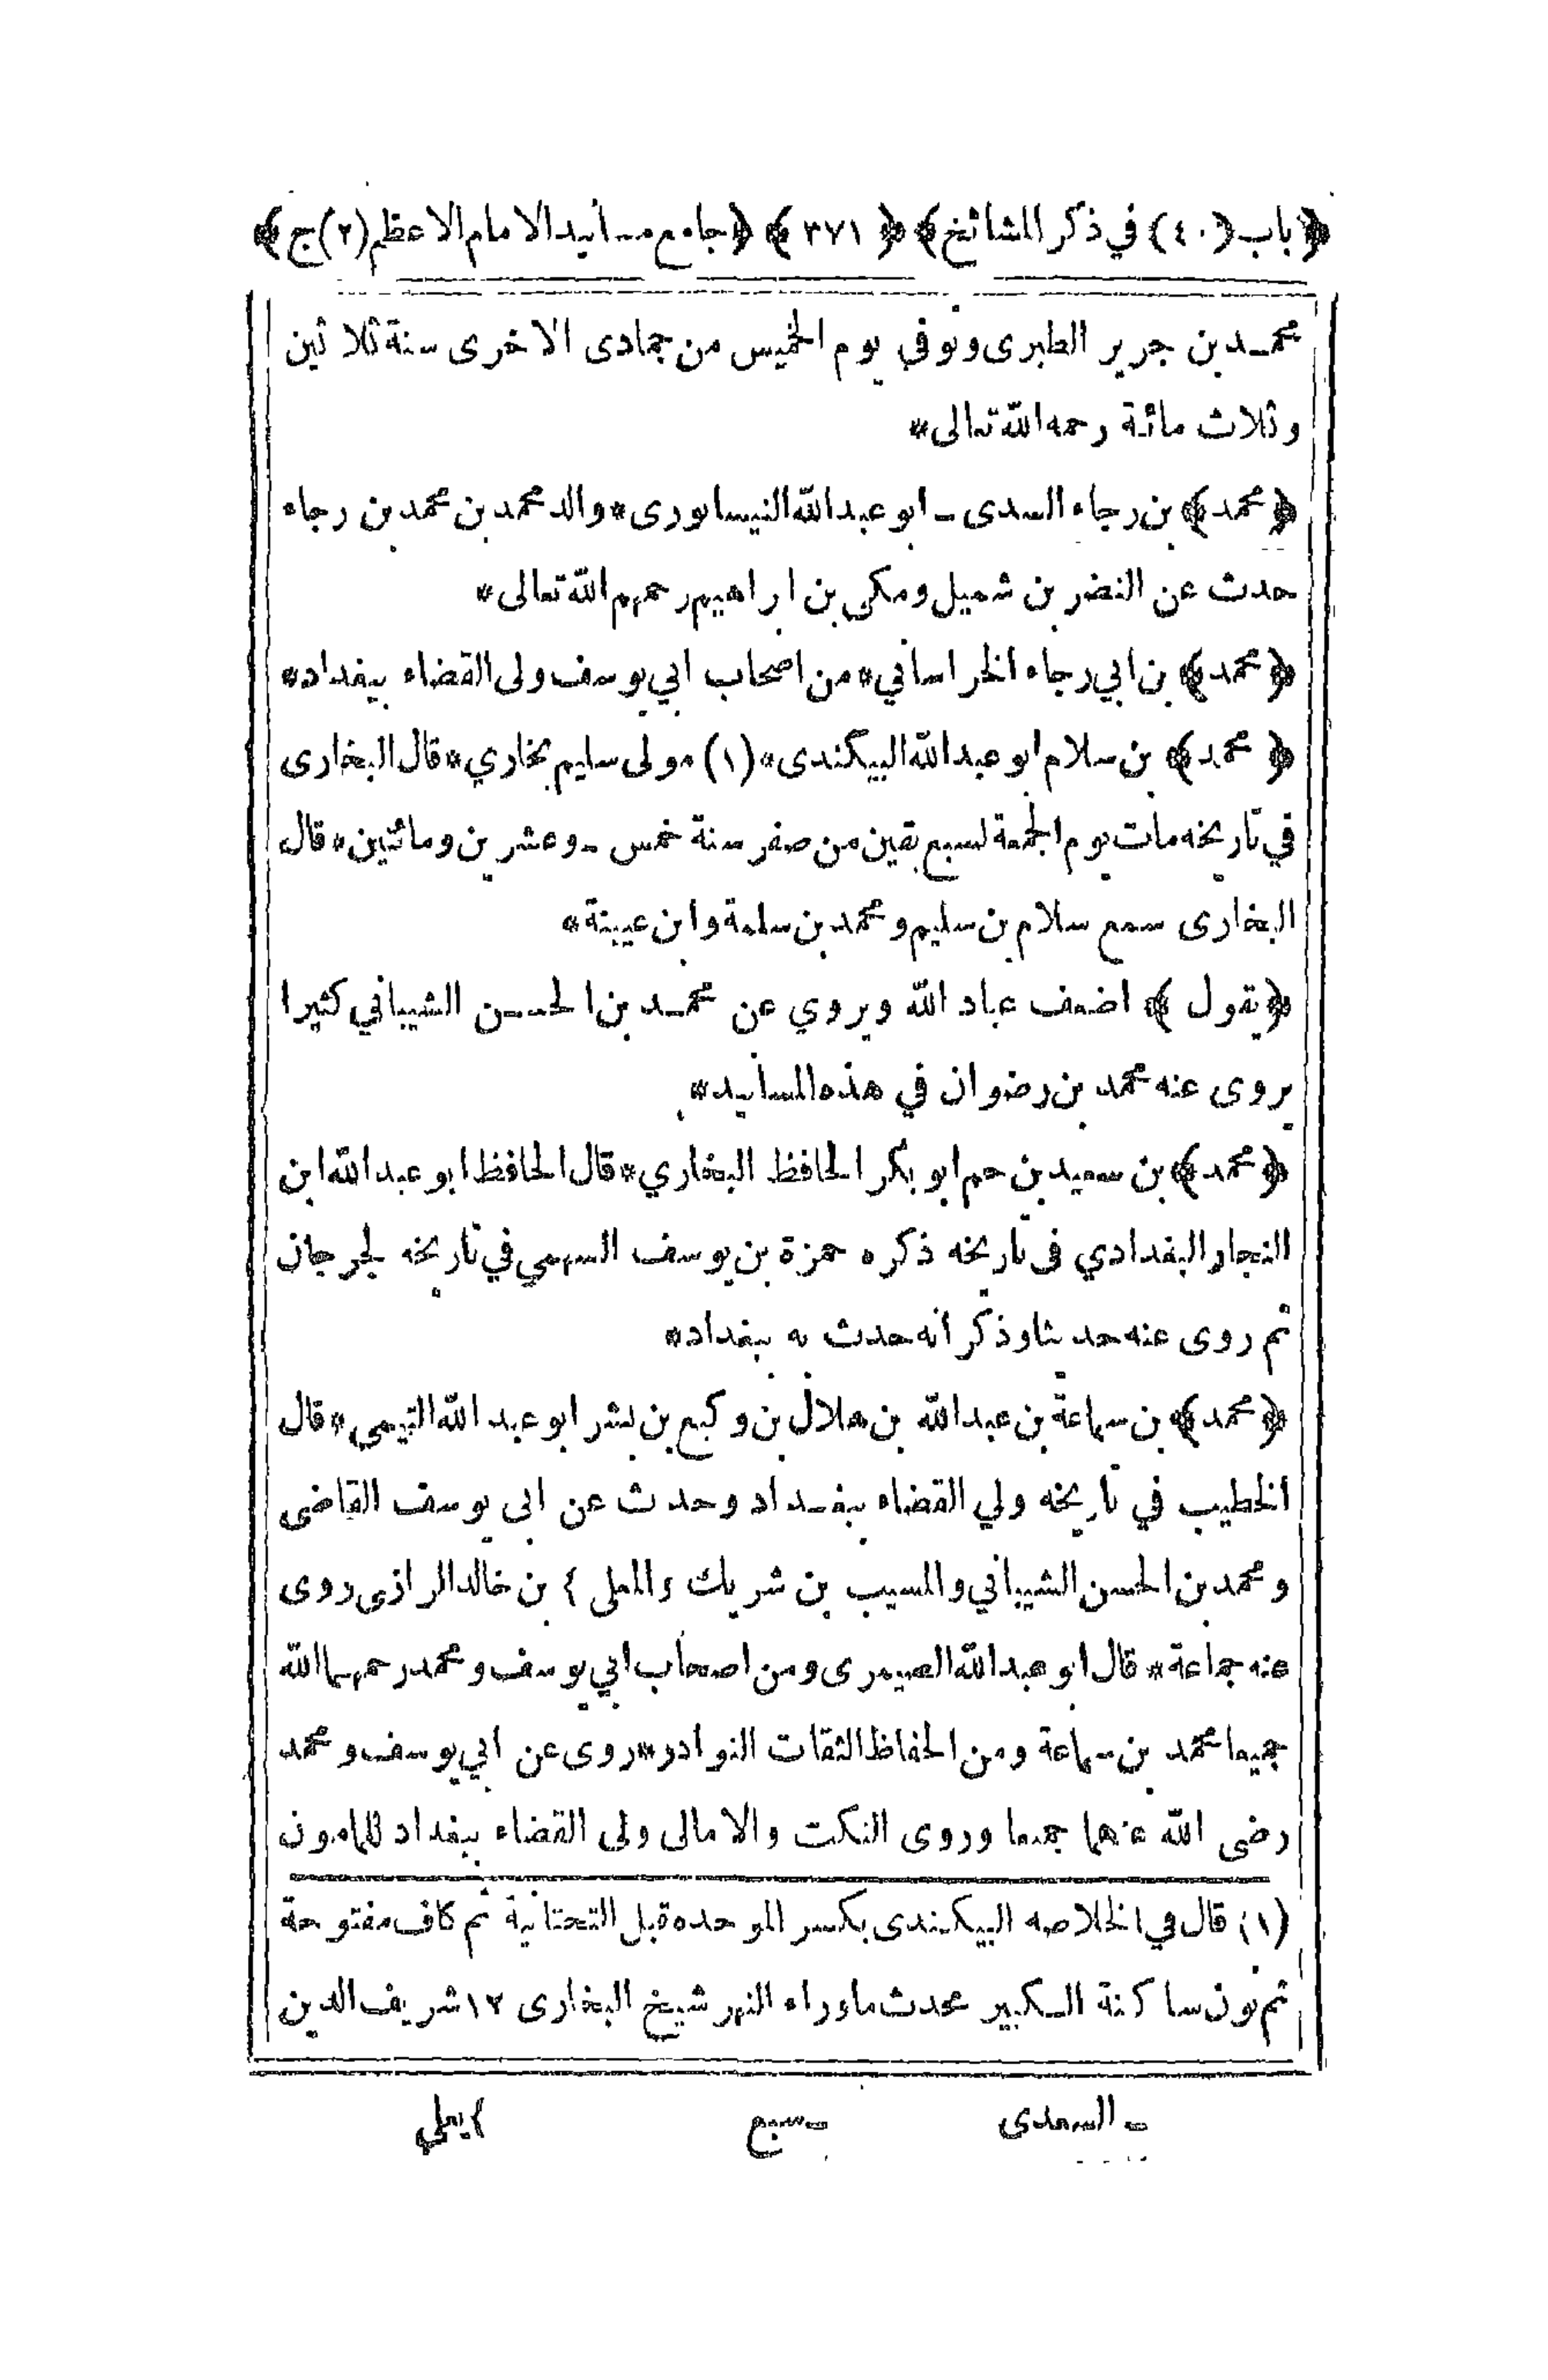 ﴿باب (٤٠) في ذكر المشائخ﴾ ﴿ ٣٧١ ﴾ ﴿جامع مسانيد الامام الاعظم (٢) ج﴾
محمد بن جرير الطبرى وتوفي يوم الخميس من جمادى الاخرى سنة ثلاثين
وثلاث مائة رحمه الله تعالى*
﴿محمد﴾ بن رجاء السدى ـ ابو عبد الله النيسابورى* والد محمد بن محمد بن رجاء
حدث عن النضر بن شميل ومكى بن ابراهيم رحمهم الله تعالى*
﴿محمد﴾ بن ابي رجاء الخراساني* من اصحاب ابي يوسف ولى القضاء ببغداد*
﴿محمد﴾ بن سلام ابو عبد الله البيكندى* (١) مولى سليم بخاري* قال البخارى
في تاريخه مات يوم الجمعة لسبع بقين من صفر سنة خمس ـ وعشرين ومائتين* قال
البخارى سمع سلام بن سليم ومحمد بن سلمة وابن عيينة*
﴿يقول﴾ اضعف عباد الله ويروي عن محمد بن الحسن الشيباني كثيرا
يروى عنه محمد بن رضوان في هذه المسانيد*
﴿محمد﴾ بن سعيد بن حم ابو بكر الحافظ البخاري* قال الحافظ ابو عبد الله ابن
النجار البغدادي فى تاريخه ذكره حمزة بن يوسف السهمي في تاريخه لجرجان
ثم روى عنه حديثا وذكر انه حدث به ببغداد*
﴿محمد﴾ بن سماعة بن عبد الله بن هلال بن وكيع بن بشر ابو عبد الله التيمي* قال
الخطيب في تاريخه ولي القضاء ببغداد وحدث عن ابى يوسف القاضى
ومحمد بن الحسن الشيباني والمسيب بن شريك والمعلى ﴾ بن خالد الرازى روى
عنه جماعة* قال ابو عبد الله الصيمرى ومن اصحاب ابي يوسف ومحمد رحمهما الله
جميعا محمد بن سماعة ومن الحفاظ الثقات النوادر* روى عن ابي يوسف ومحمد
رضى الله عنهما جميعا وروى النكت والامالى ولى القضاء ببغداد للمامون
(١) قال في الخلاصه البيكندى بكسر الموحده قبل التحتانية ثم كاف مفتوحة
ثم نون ساكنة الكبير محدث ماوراء النهر شيخ البخارى ١٢ شريف الدين
ـ السعدى    ـ سبع    ﴾ يعلي